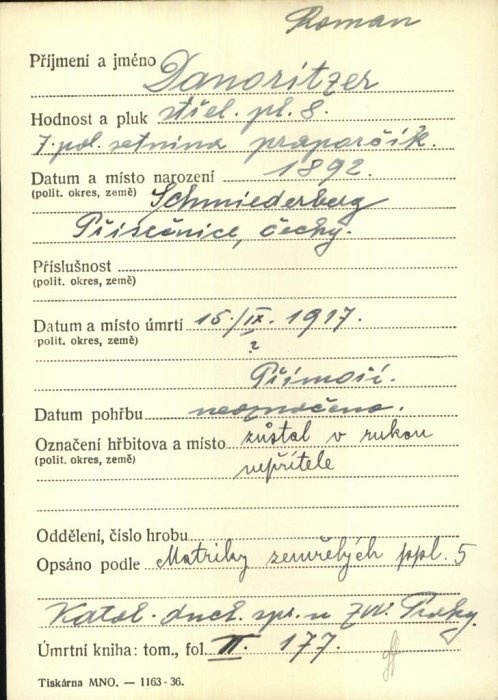 Roman
Příjmení a jméno Danoritzer
Hodnost a pluk střel. pl. 8.
7. pol. setnina praporčík.
Datum a místo narození 1892.
(polit. okres, země) Schmiederberg
Přísečnice, Čechy.
Příslušnost
(polit. okres, země)
Datum a místo úmrtí 15./IX. 1917.
polit. okres, země)
?
Přímoří.
Datum pohřbu neoznačeno.
Označení hřbitova a místo zůstal v rukou
(polit. okres, země) nepřítele
Oddělení, číslo hrobu
Opsáno podle Matriky zemřelých ppl. 5
Katol. duch. spr. u ZVV. Prahy.
Úmrtní kniha: tom., fol. II. 177.
Tiskárna MNO. — 1163-36.